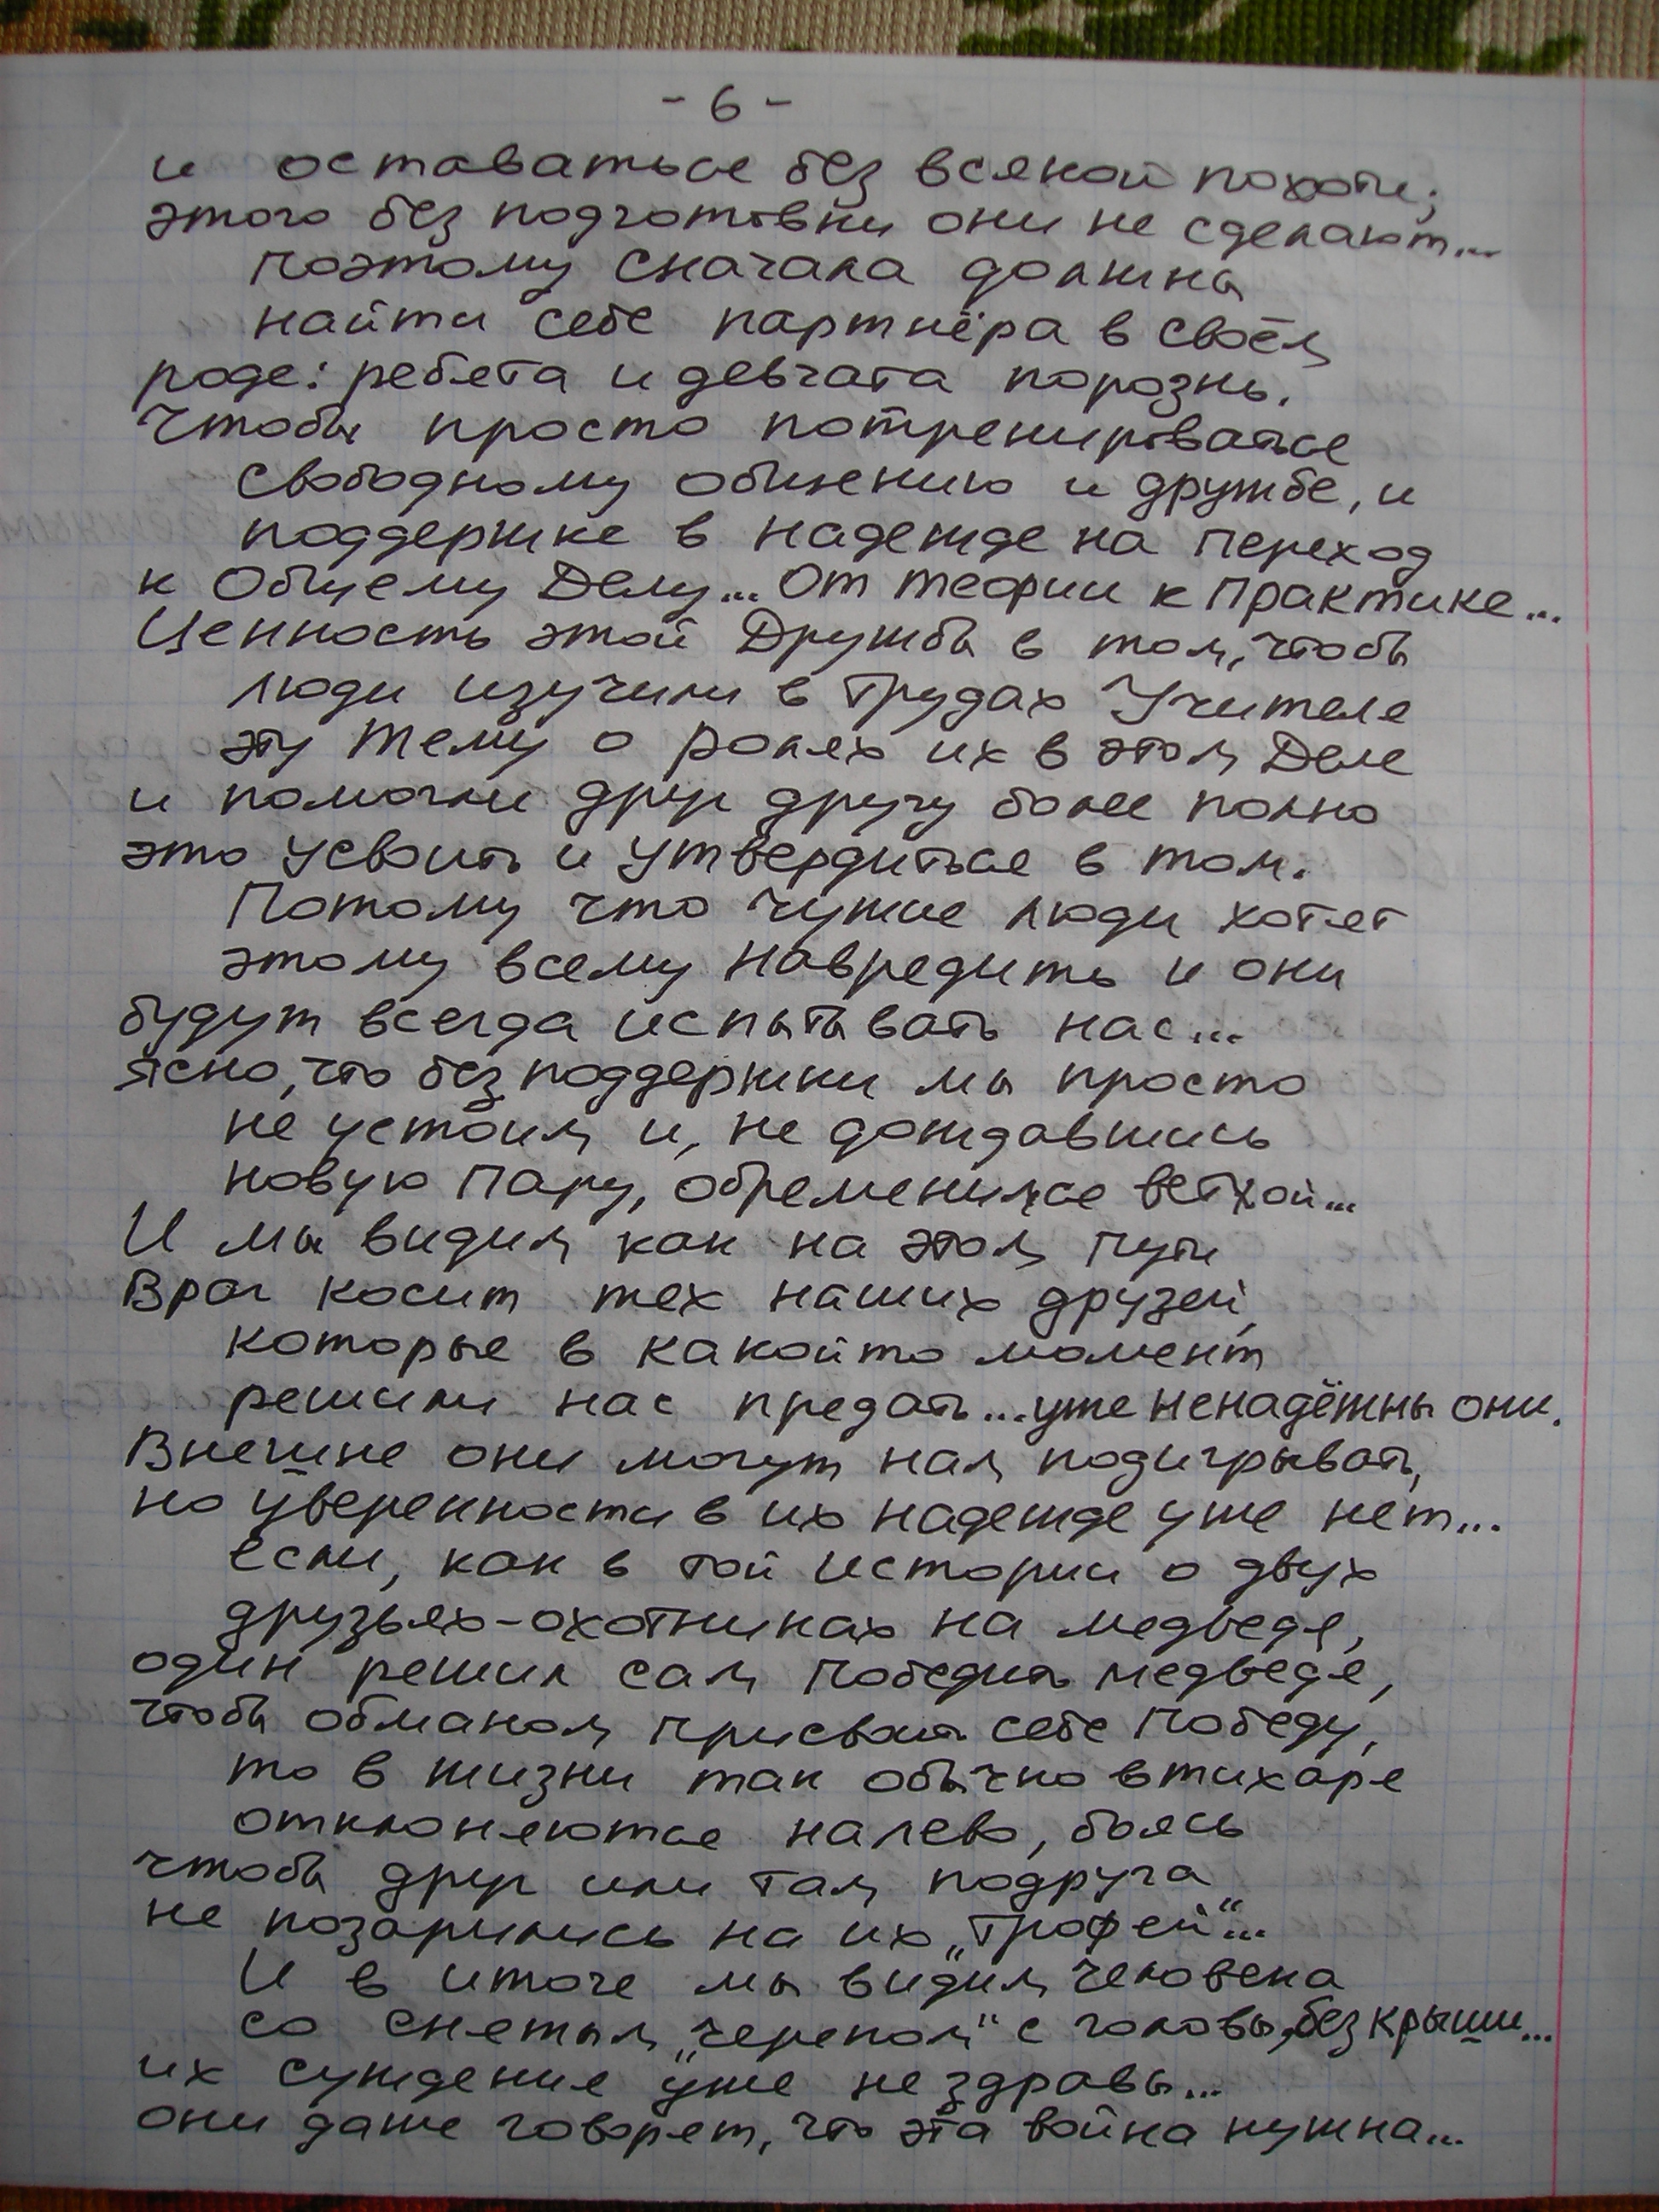 - 6 -
и оставаться без всякой похоти;
этого без подготовки они не сделают...
Поэтому сначала должны
найти себе партнёра в своём
роде: ребята и девчата порознь.
Чтобы просто потренироваться
свободному общению и дружбе, и
поддержке в надежде на переход
к Общему Делу... От теории к практике...
Ценность этой Дружбы в том, чтобы
люди изучили в трудах Учителя
эту тему о ролях их в этом Деле
и помогли друг другу более полно
это усвоить и утвердиться в том.
Потому что чужие люди хотят
этому всему навредить и они
будут всегда испытывать нас...
Ясно, что без поддержки мы просто
не устоим и, не дождавшись
новую пару, обременимся ветхой...
И мы видим как на этом пути
Враг косит тех наших друзей,
которые в какойто момент
решили нас предать... уже ненадёжны они.
Внешне они могут нам подигрывать,
но уверенности в их надежде уже нет...
если, как в той истории о двух
друзьях-охотниках на медведя,
один решил сам победить медведя,
чтобы обманом присвоить себе победу,
то в жизни так обычно втихаря
отклоняются налево, боясь
чтобы друг или там подруга
не позарились на их „трофей"...
И в итоге мы видим человека
со снятым „черепом" с головы, без крыши...
их суждения уже не здравы...
они даже говорят, что эта война нужна...